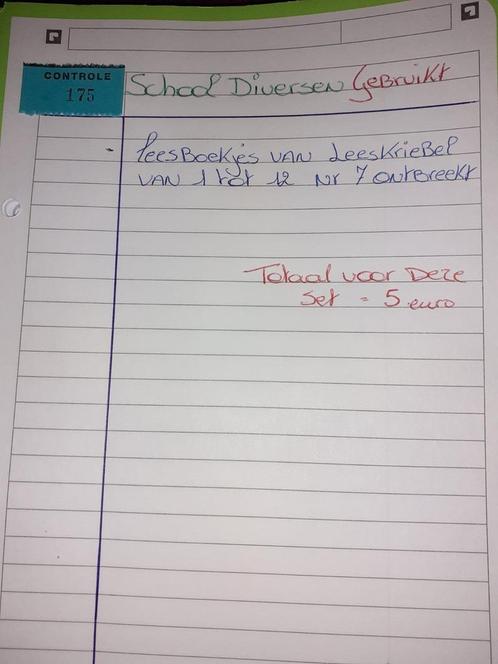 CONTROLE
175
School Diversen Gebruikt
- leesBoekjes van Leeskriebel
van 1 tot 12 Nr 7 ontbreekt
Totaal voor Deze
Set = 5 euro